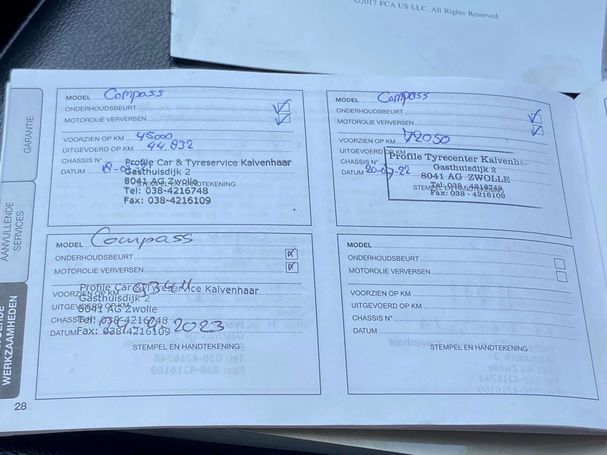 ©2017 FCA US LLC. All Rights Reserved.
GARANTIE
AANVULLENDE
SERVICES
WERKZAAMHEDEN
MODEL Compass
ONDERHOUDSBEURT
MOTOROLIE VERVERSEN
VOORZIEN OP KM 45000
UITGEVOERD OP KM 44.832
CHASSIS N°
DATUM
Profile Car & Tyreservice Kalvenhaar
Gasthuisdijk 2
8041 AG Zwolle
STEMPEL EN HANDTEKENING
Tel: 038-4216748
Fax: 038-4216109
MODEL Compass
ONDERHOUDSBEURT
MOTOROLIE VERVERSEN
VOORZIEN OP KM 72050
UITGEVOERD OP KM
CHASSIS N°
DATUM 20-07-22
Profile Tyrecenter Kalvenh
Gasthuisdijk 2
8041 AG ZWOLLE
STEMPEL EN HANDTEKENING
Tel: 038 - 4216748
Fax: 038 - 4216109
MODEL Compass
ONDERHOUDSBEURT
MOTOROLIE VERVERSEN
VOORZIEN OP KM
UITGEVOERD OP KM
CHASSIS
DATUM 2023
Profile Car & Tyreservice Kalvenhaar
Gasthuisdijk 2
8041 AG Zwolle
Tel: 038-4216748
Fax: 038-4216109
STEMPEL EN HANDTEKENING
MODEL
ONDERHOUDSBEURT
MOTOROLIE VERVERSEN
VOORZIEN OP KM
UITGEVOERD OP KM
CHASSIS N°
DATUM
STEMPEL EN HANDTEKENING
28